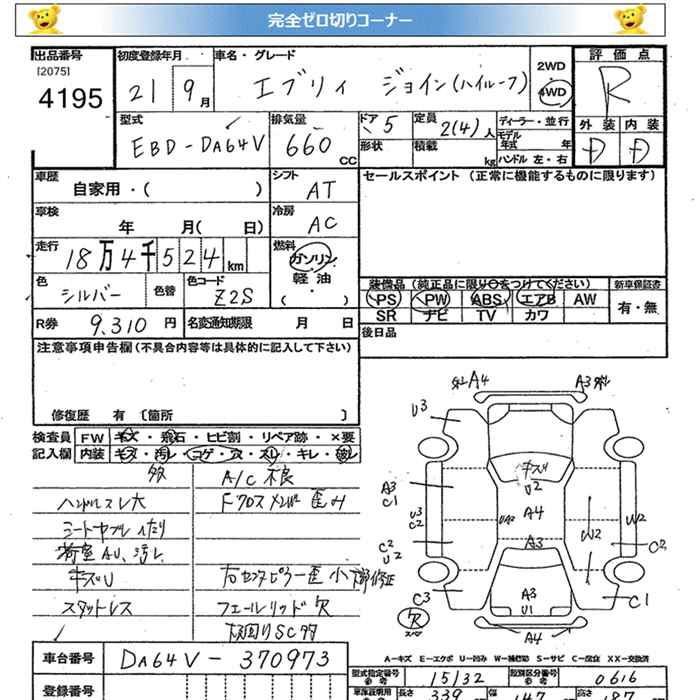 完全ゼロ切りコーナー
出品番号 初度登録年月 車名・グレード 評価点
[2075] 4195
21 9月 エブリィ ジョイン(ハイルーフ) 2WD 4WD R
型式 排気量 ドア 定員 ディーラー・並行 外装 内装
EBD-DA64V 660 CC 5 2(4)人 モデル年式 年 D D
形状 積載 kg ハンドル 左・右
車歴 自家用・( ) シフト AT セールスポイント (正常に機能するものに限ります)
車検 年 月( 日) 冷房 AC
走行 18万4千524km 燃料 ガソリン 軽油 ( ・ )
色 シルバー 色替 色コード Z2S
装備品 (純正品に限り○をつけてください) 新車保証書
PS PW ABS エアB AW 有・無
SR ナビ TV カワ
R券 9,310円 名変通知期限 月 日 後日品
注意事項申告欄(不具合内容等は具体的に記入して下さい)
修復歴 有 〔箇所 〕
検査員記入欄 FW キズ・飛石・ヒビ割・リペア跡・×要
内装 キズ・汚レ・コゲ・穴・スレ・キレ・破レ
多 A/C不良
ハンドルスレ大 Fクロスメンバー歪み
シートヤブレ ヘたり
荷室AU、汚レ
キズU 右センタピラー歪小
スタットレス フューエルリッド欠
下回りSC多
A4 A3
U3
キズ U2
A3 C1
U3 C2
A4
UA2
U2 W2
A3
C2 U2 C2
C3 C1
A3 U1
欠 A4
A-キズ E-エクボ U-凹み W-補修跡 S-サビ C-腐食 XX-交換済
車台番号 DA64V-370973
型式指定番号参考 15132 類別区分番号参考 0616
登録番号 長さ 339 幅 147 高さ 187